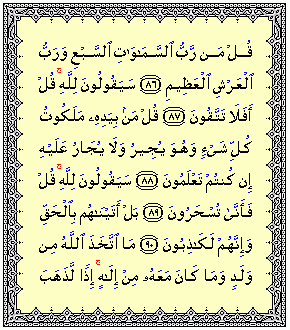 قُلْ مَن رَّبُّ ٱلسَّمَـٰوَٰتِ ٱلسَّبْعِ وَرَبُّ
ٱلْعَرْشِ ٱلْعَظِيمِ ۝٨٦ سَيَقُولُونَ لِلَّهِ ۚ قُلْ
أَفَلَا تَتَّقُونَ ۝٨٧ قُلْ مَنۢ بِيَدِهِۦ مَلَكُوتُ
كُلِّ شَىْءٍ وَهُوَ يُجِيرُ وَلَا يُجَارُ عَلَيْهِ
إِن كُنتُمْ تَعْلَمُونَ ۝٨٨ سَيَقُولُونَ لِلَّهِ ۚ قُلْ
فَأَنَّىٰ تُسْحَرُونَ ۝٨٩ بَلْ أَتَيْنَـٰهُم بِٱلْحَقِّ
وَإِنَّهُمْ لَكَـٰذِبُونَ ۝٩٠ مَا ٱتَّخَذَ ٱللَّهُ مِن
وَلَدٍ وَمَا كَانَ مَعَهُۥ مِنْ إِلَـٰهٍ ۚ إِذًا لَّذَهَبَ